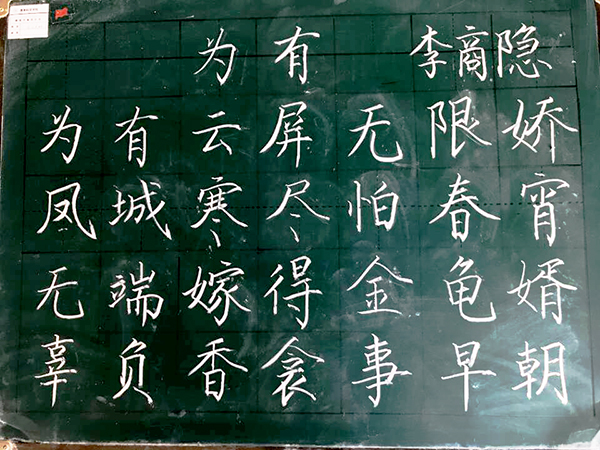 为有 李商隐
为有云屏无限娇
凤城寒尽怕春宵
无端嫁得金龟婿
辜负香衾事早朝